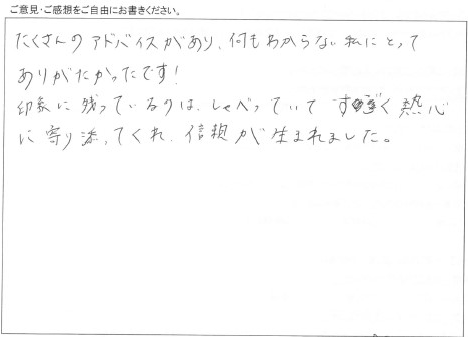 ご意見・ご感想をご自由にお書きください。
たくさんのアドバイスがあり、何もわからない私にとって
ありがたかったです!
印象に残っているのは、しゃべっていて すごく熱心
に寄り添ってくれ、信頼が生まれました。